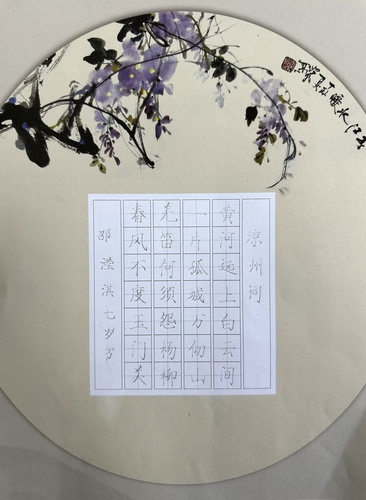 凉州词
黄河远上白云间
一片孤城万仞山
羌笛何须怨杨柳
春风不度玉门关
邵滢淇七岁书
江水暖